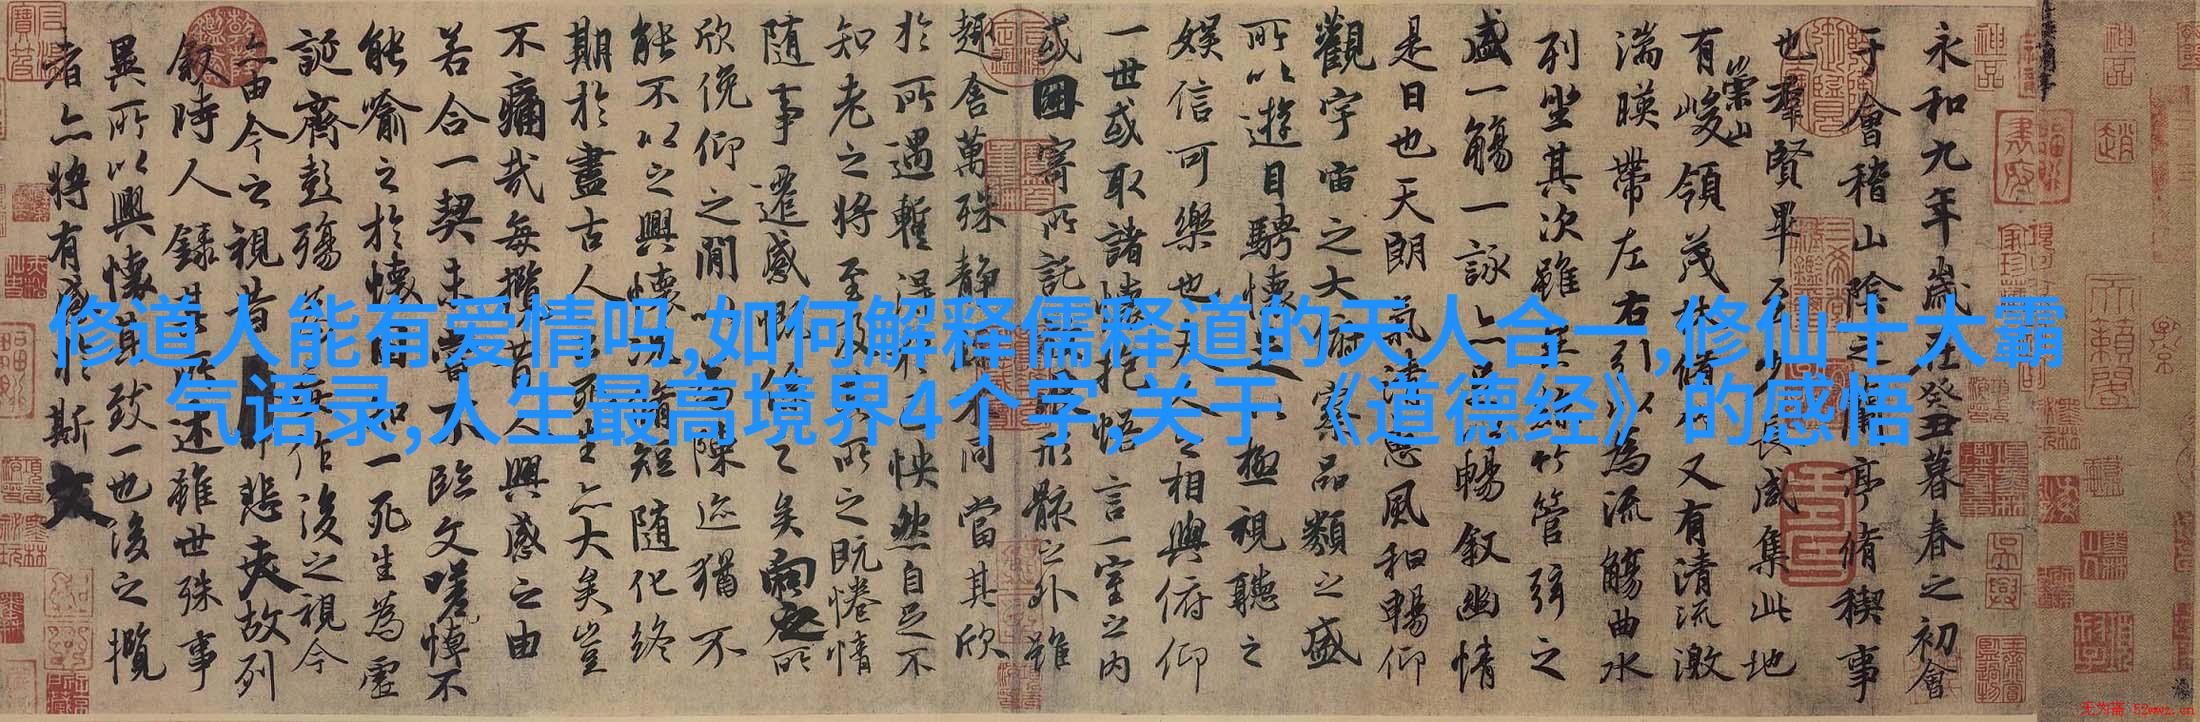 修道人能有爱情吗,如何解释儒释道的天人合一,修仙十大霸
气语录,人生最高境界4个字,关于《道德经》的感悟
永和九年歲在癸丑暮春之初會
于會稽山陰之蘭亭脩稧事
也羣賢畢至少長咸集此地
有崇山峻領茂林脩竹又有清流激
湍暎帶左右引以為流觴曲水
列坐其次雖無絲竹管弦之
盛一觴一詠亦足以暢叙幽情
是日也天朗氣清惠風和暢仰
觀宇宙之大俯察品類之盛
所以遊目騁懷足以極視聽之
娛信可樂也夫人之相與俯仰
一世或取諸懷抱悟言一室之內
或因寄所託放浪形骸之外雖
趣舍萬殊靜躁不同當其欣
於所遇蹔得於己怏然自足不
知老之將至及其所之既惓情
隨事遷感慨係之矣向之所
欣俛仰之閒以為陳迹猶不
能不以之興懷況脩短隨化終
期於盡古人云死生亦大矣豈
不痛哉每攬昔人興感之由
若合一契未嘗不臨文嗟悼不
能喻之於懷固知一死生為虛
誕齊彭殤為妄作後之視今
亦由今之視昔悲夫故列
敘時人錄其所述雖世殊事
異所以興懷其致一也後之攬
者亦將有感於斯文